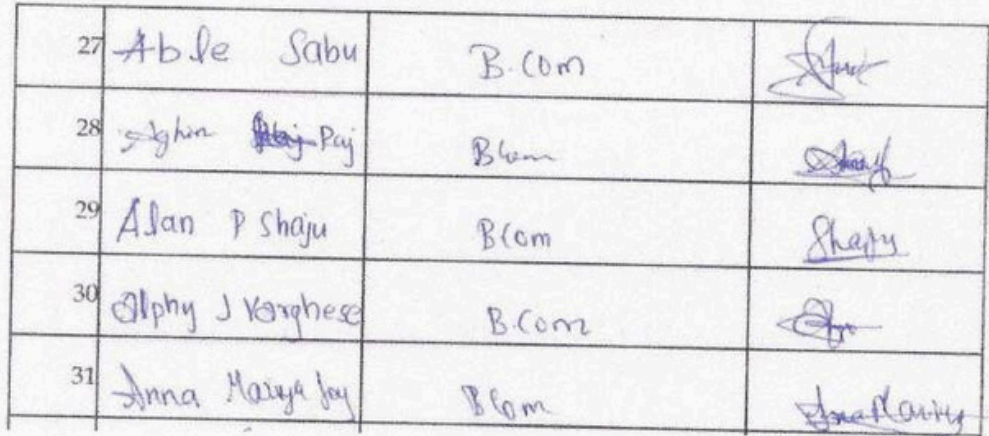 27 Able Sabu B.Com
28 Aghin Raj BCom
29 Alan P Shaju BCom Shaju
30 Alphy J Varghese B.Com
31 Anna Mariya Joy BCom